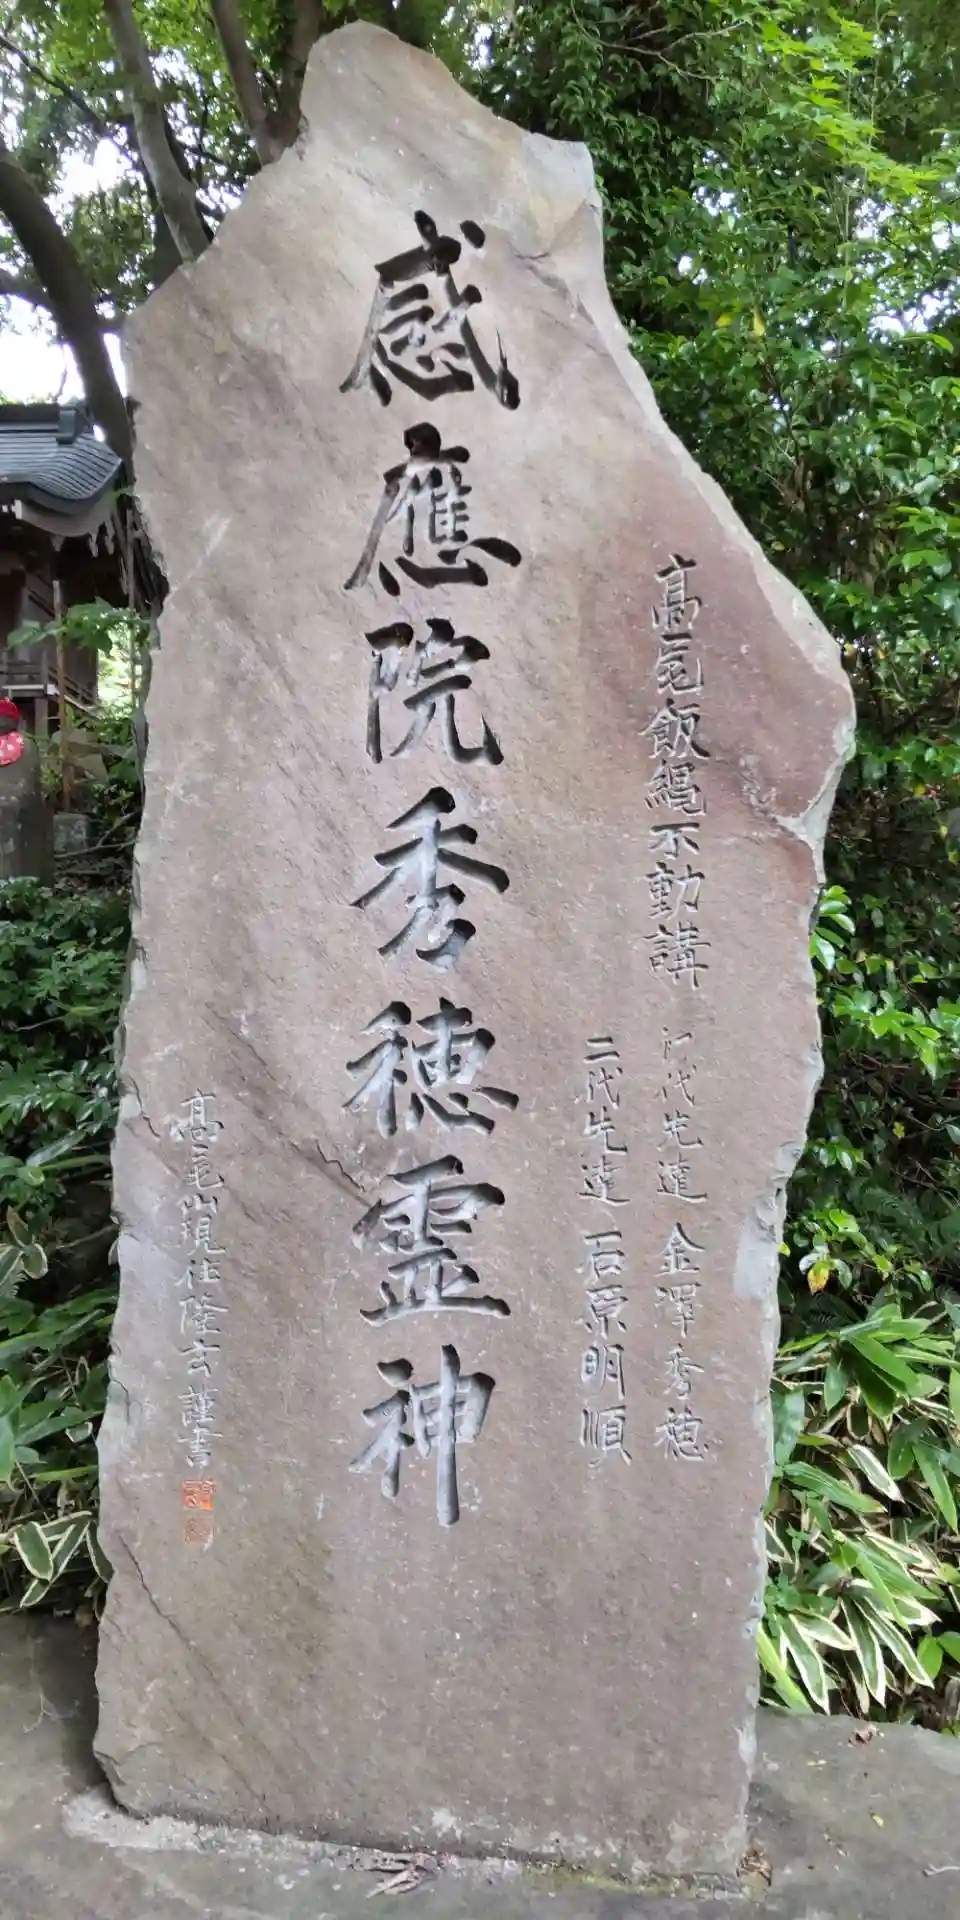 高尾飯縄不動講
初代先達 金澤秀穂
二代先達 石原明順
感應院秀穂霊神
髙尾山現住隆玄謹書